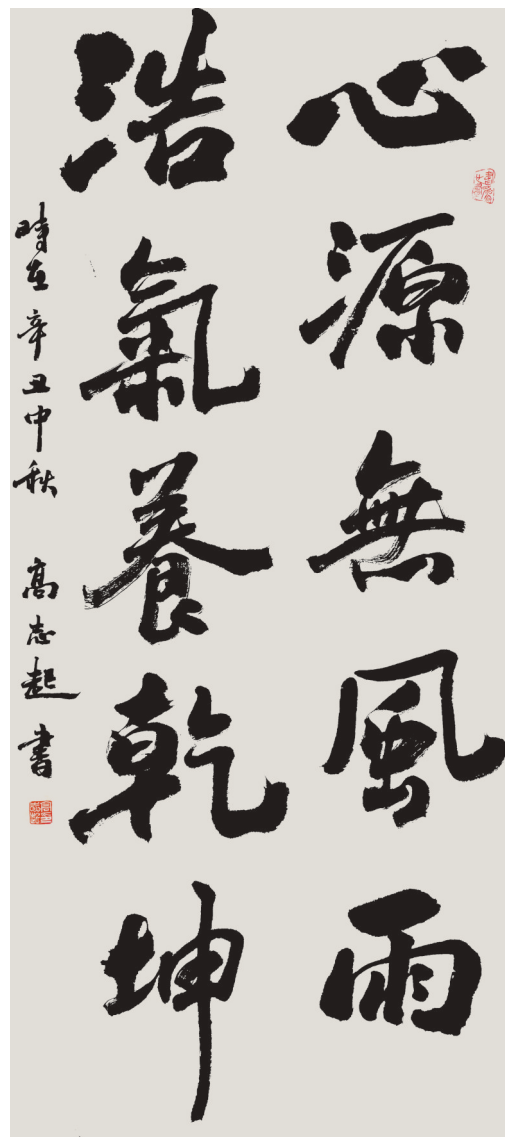 心源無風雨
浩氣養乾坤
時在辛丑中秋 高志起書